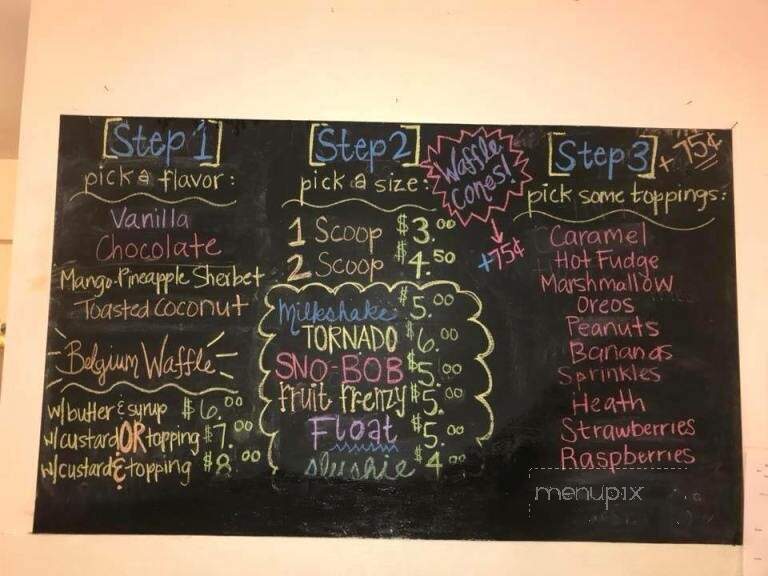 [Step 1]
pick a flavor:
Vanilla
Chocolate
Mango-Pineapple Sherbet
Toasted Coconut
Belgium Waffle
w/butter & syrup $6.00
w/custard OR topping $7.00
w/custard & topping $8.00
[Step 2]
pick a size:
1 Scoop $3.00
2 Scoop $4.50
Waffle
Cones!
+75¢
Milkshake $5.00
TORNADO $6.00
SNO-BOB $5.00
fruit frenzy $5.00
Float $5.00
slushie $4.00
[Step 3] + 75¢
pick some toppings:
Caramel
Hot Fudge
Marshmallow
Oreos
Peanuts
Bananas
Sprinkles
Heath
Strawberries
Raspberries
menupix